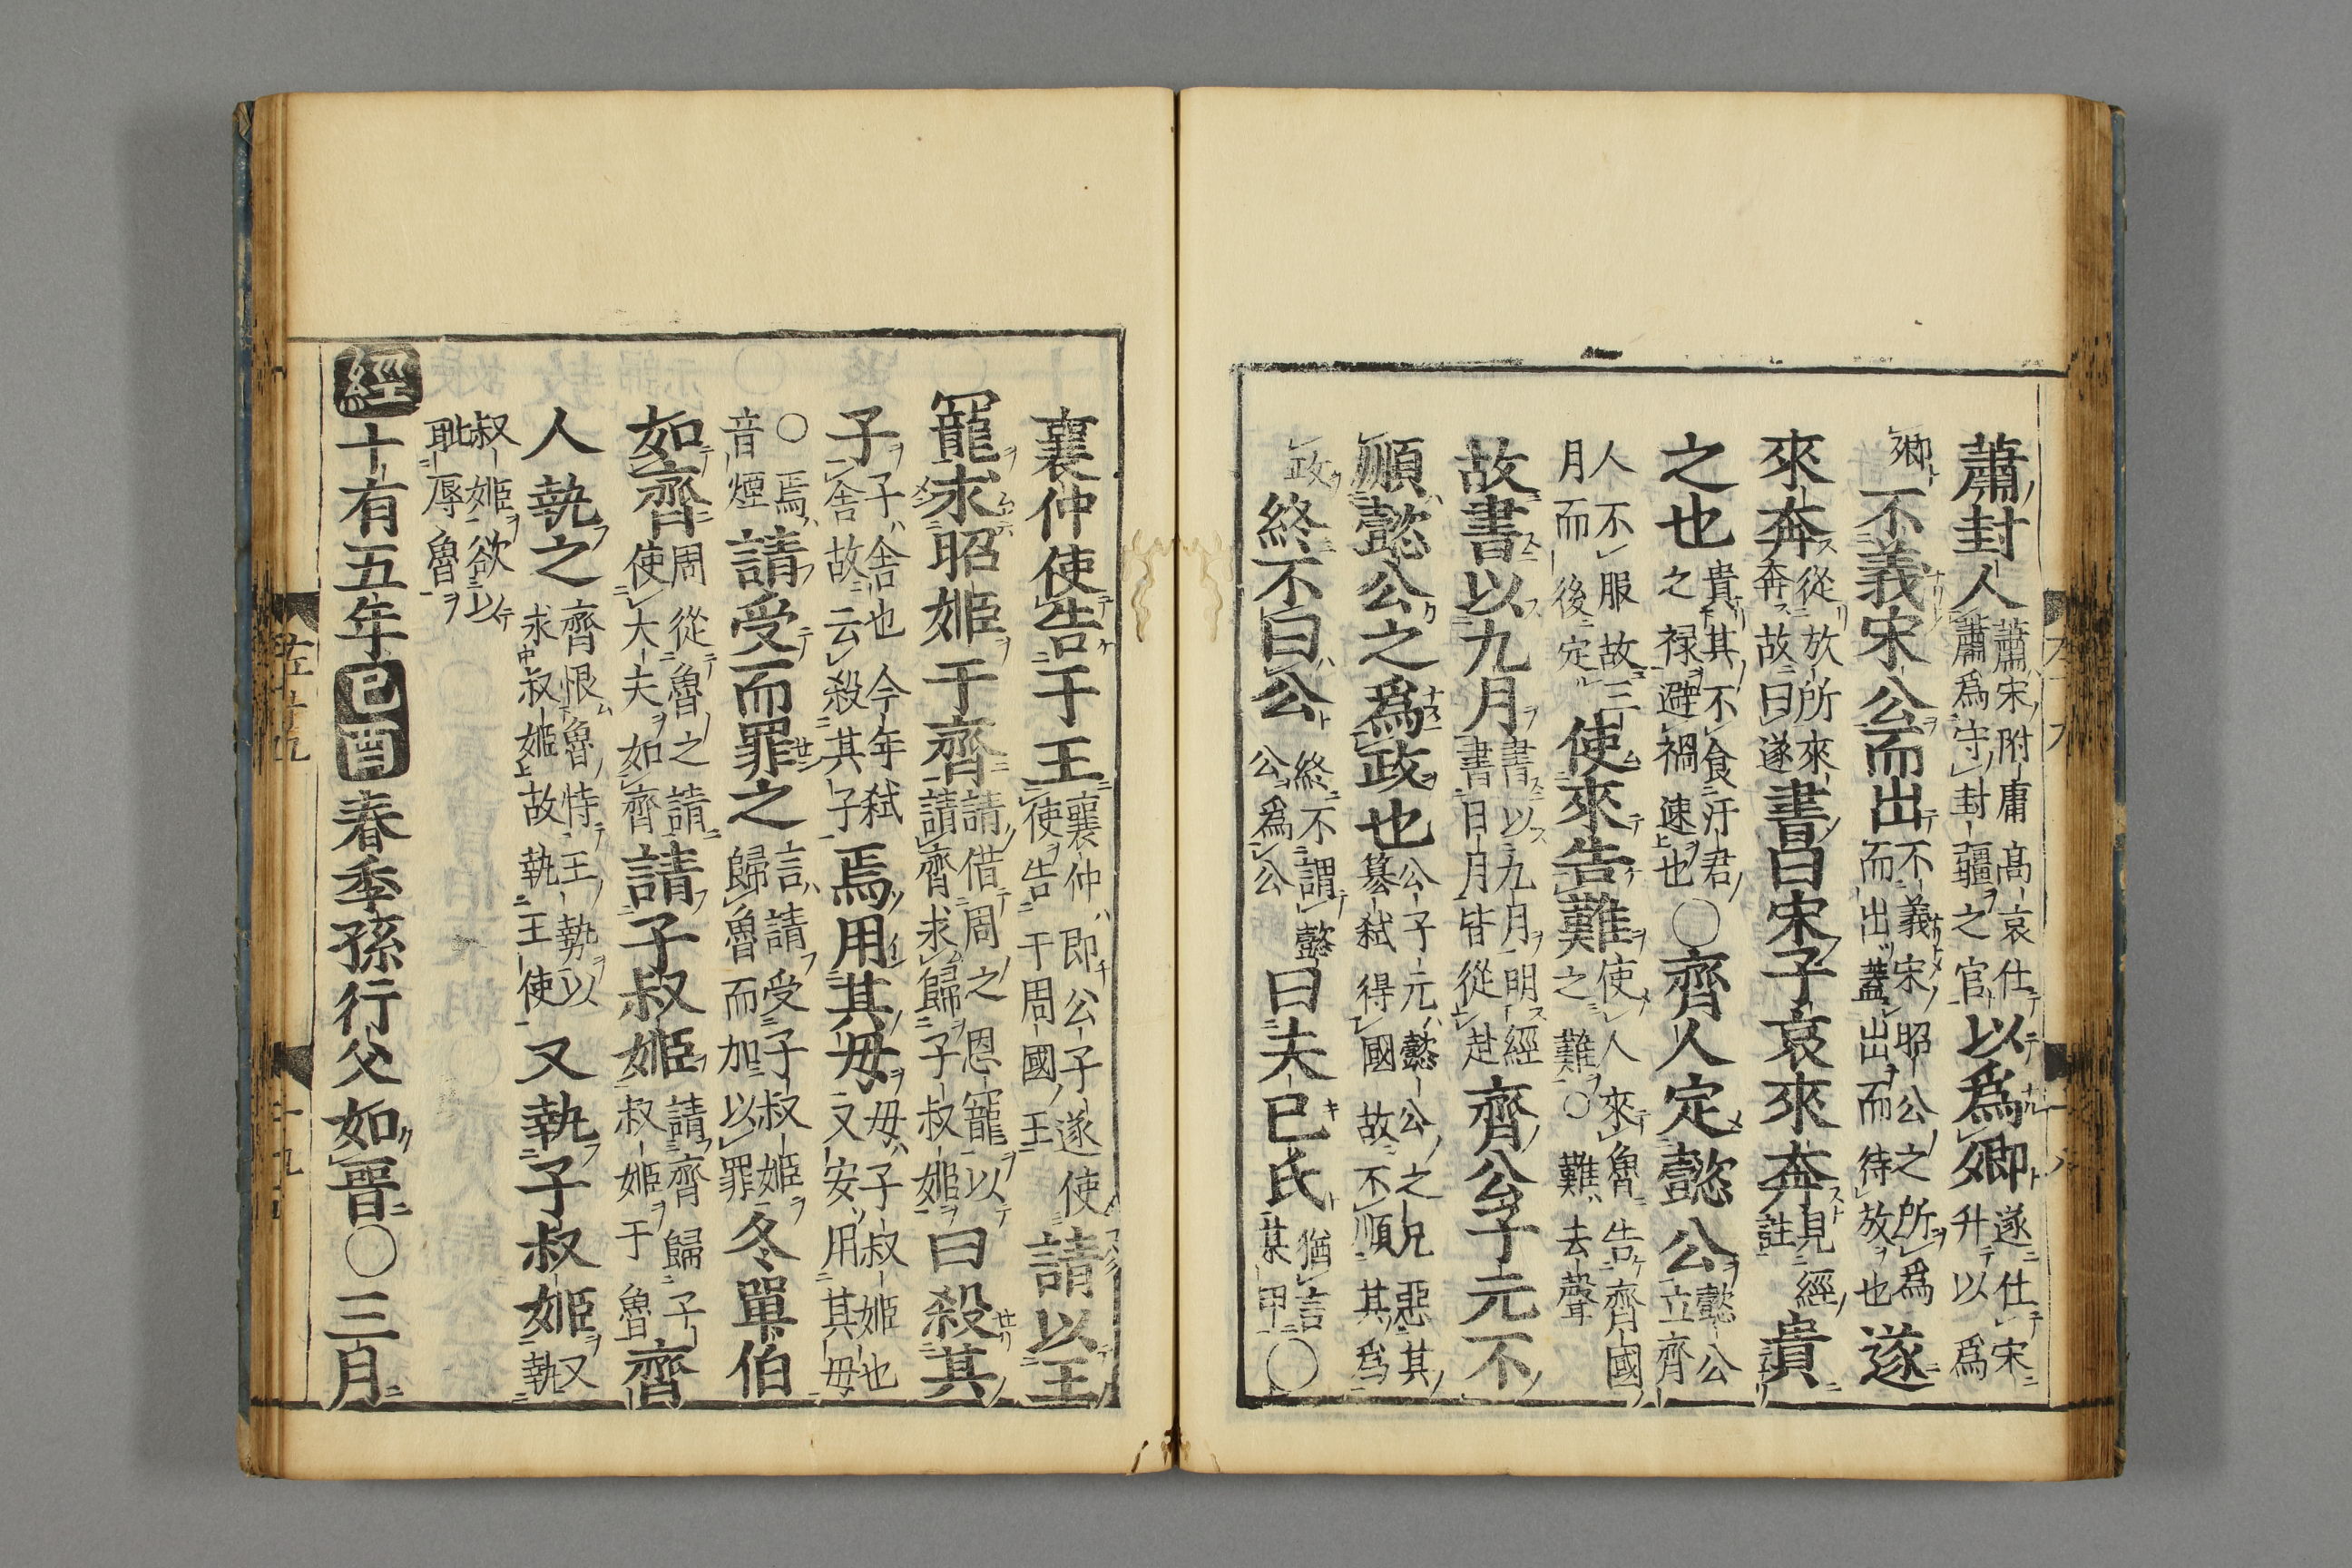 蕭封人蕭宋附庸髙哀仕蕭爲守封疆之官以爲卿遂仕宋升以爲
卿不義宋公而出不義宋昭公之所爲而出蓋出而待放也遂
來奔從放所來奔故曰遂書曰宋子哀來奔見經註貴
之也貴其不食汙君之禄避禍速也○齊人定懿公懿公立齊
人不服故三月而後定使來告難使人來魯告齊國之難○難去聲
故書以九月書以九月明經書日月皆從赴齊公子元不
順懿公之爲政也公子元懿公之兄惡其簒弑得國故不順其爲
政終不曰公終不謂懿公爲公曰夫已氏猶言某甲○
襄仲使告于王襄仲即公子遂使使告于周國王請以王
寵求昭姬于齊請借周之恩寵以請齊求歸子叔姬曰殺其
子子舍也今年弑舍故云殺其子焉用其母母子叔姬也又安用其母
○焉音煙請受而罪之言請受子叔姬歸魯而加以罪冬單伯
如齊周從魯之請使大夫如齊請子叔姬請齊歸子叔姬于魯齊
人執之齊恨魯恃王勢以求叔姬故執王使又執子叔姬又執
叔姬欲以耻辱魯
經十有五年己酉春季孫行父如晋○三月